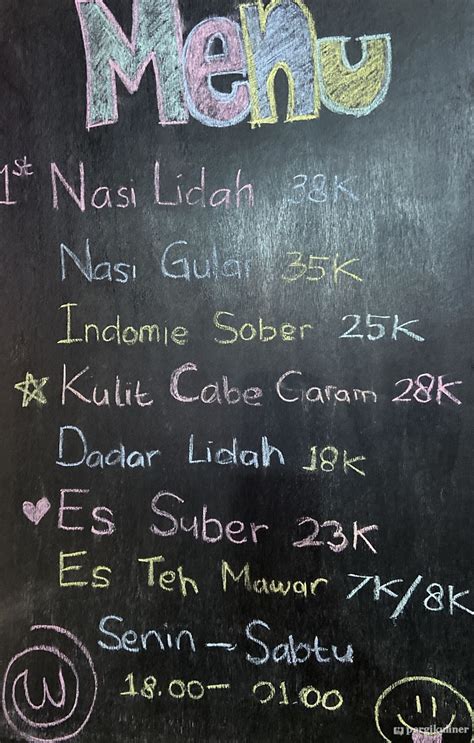 Menu
1st Nasi Lidah 38K
Nasi Gular 35K
Indomie Sober 25K
Kulit Cabe Garam 28K
Dadar Lidah 18K
Es Suber 23K
Es Teh Mawar 7K/8K
Senin - Sabtu
18.00 - 01.00
pergikuliner